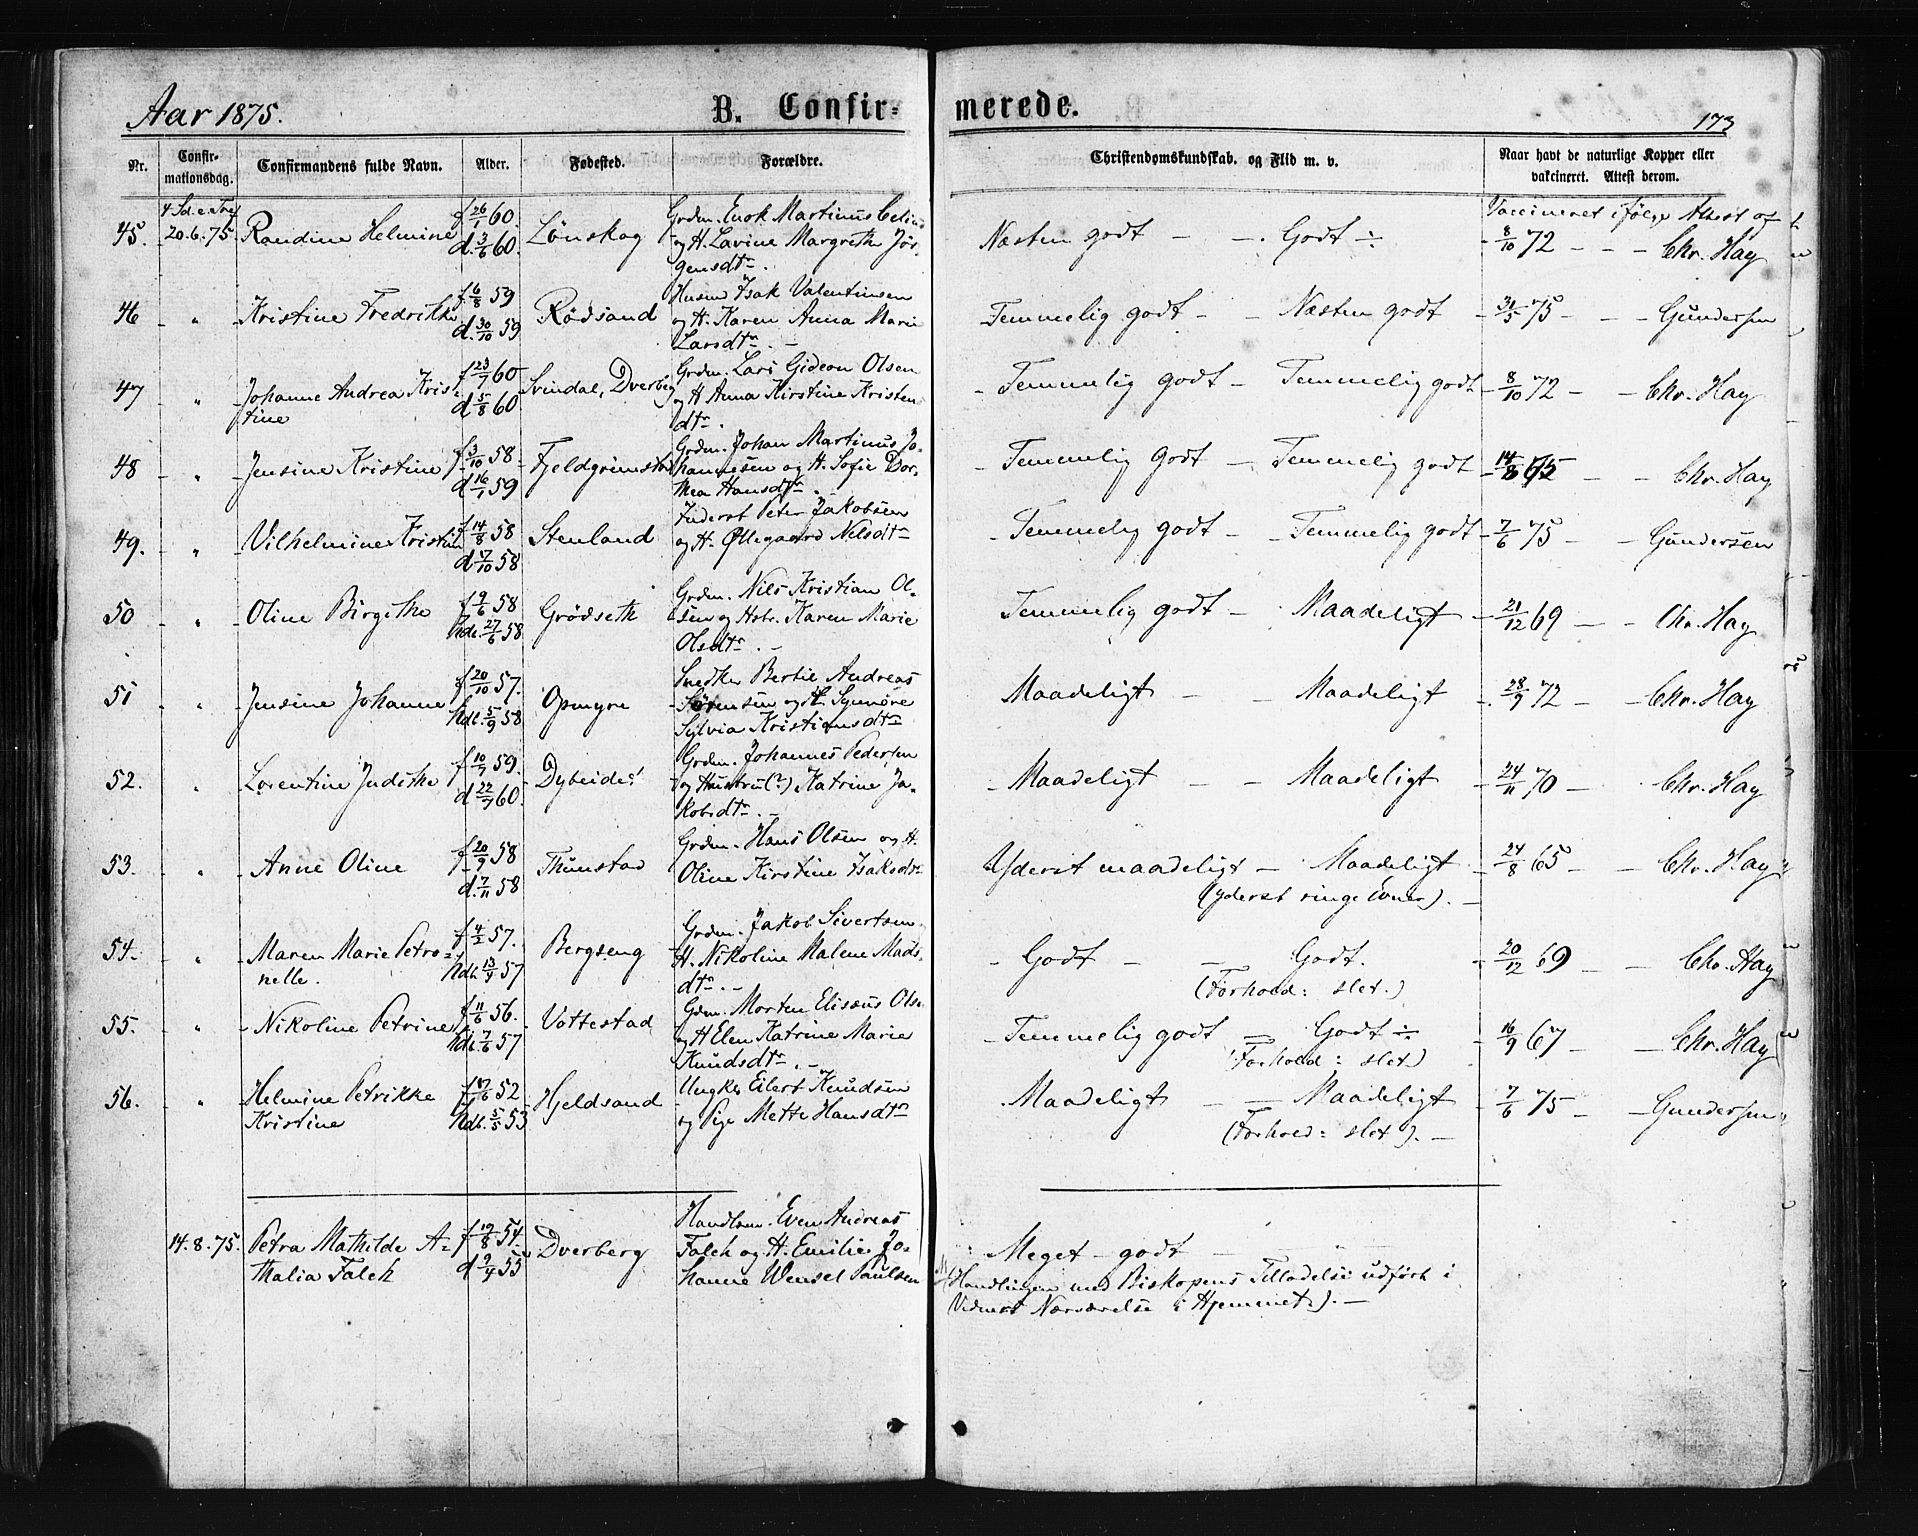 Aar 1875. B. Confir= merede. 173
Nr. Confir-mationsdag. Confirmandens fulde Navn. Alder. Fødested. Forældre. Christendomskundskab. og Flid m. v. Naar havt de naturlige Kopper eller vakcineret. Attest derom.
4 Sd. e. Tref Vaccineret ifølge Attest af
45. 20.6.75 Randine Helmine f. 26/1 60. d. 3/6 60. Lönskog Grdm. Enok Martinus
og H. Lavine Margrethe Jör-
gensdtr. Næsten godt — — Godt ÷ 8/10 72 — — Chr. Hay
46 " Kristine Fredrikke f. 6/8 59 d. 30/10 59 Rödsand Husmd Isak Valentinsen
og H. Karen Anna Marie
Larsdtr. — Temmelig godt — Næsten godt 31/5 75 — — Gundersen
47 " Johanne Andrea Kris-
tine f. 23/7 60 d. 5/8 60 Svindal, Dverberg Grdm. Lars Gideon Olsen
og H Anna Kirstine Kristen
dtr. Temmelig godt — Temmelig godt 8/10 72 — — Chr. Hay
48 " Jensine Kristine f. 3/10 58 d. 16/1 59 Fjeldgrimstad Grdm. Johan Martinus Jo-
hannesen og H. Sofie Dor-
thea Hansdtr. Temmelig Godt — Temmelig godt 14/8 65 — — Chr. Hay
49. " Vilhelmine Kristine f. 14/8 58 d. 17/10 58 Stenland Inderst Peter Jakobsen
og H. Øllegaard Nilsdtr Temmelig godt — Temmelig godt 7/6 75 — — Gundersen
50 " Oline Birgithe f. 9/6 58 Ndl. 27/6 58 Grödseth Grdm. Nils Kristian Ol-
sen og Hstr. Karen Marie
Olsdtr. — Temmelig godt — Maadeligt 21/12 69 — — Chr. Hay
51 " Jensine Johanne f. 20/10 57. Ndl. 5/9 58 Opmyre Snedker Bertil Andreas
Sörensen og H. Synnöve
Sylvia Kristiansdtr Maadeligt — — Maadeligt 28/9 72 — Chr. Hay
52. " Lorentine Judithe f. 10/9 59. d. 22/7 60. Dybeidet Grdm. Johannes Pedersen
og Hustru(?) Katrine Ja-
kobsdtr. — Maadeligt — — Maadeligt 24/11 70 — Chr. Hay
53. " Anne Oline f. 20/9 58 d. 7/11 58 Thunstad Grdm. Hans Olsen og H.
Oline Kirstine Isaksdtr Yderst maadeligt — Maadeligt 24/8 65 — — Chr. Hay
(yderst ringe Evner). —
54. " Maren Marie Petro-
nelle. f. 4/2 57. Ndl. 13/4 57 Bergseng Grdm. Jakob Sivertsen
H. Nikoline Malene Mads-
dtr. — Godt — — Godt. 20/12 69 — — Chr. Hay
(Forhold: slet.)
55. " Nikoline Petrine f. 11/6 56. Ndl. 7/6 57 Vottestad Gdm. Morten Elisæus Olsen
og H Elen Katrine Marie
Knudsdtr. — Temmelig godt — Godt ÷ 16/9 67 — — Chr. Hay
(Forhold: slet)
56. " Helmine Petrikke
Kristine f. 17/6 52 Ndl. 5/5 53 Hjeldsand Ungkl Eilert Knudsen
og Pige Mette Hansdtr Maadeligt — — Maadeligt 7/6 75 — — Gundersen
(Forhold: slet). —
14.8.75. Petra Mathilde A-
thalia Falch f. 19/8 54. d. 9/4 55 Dverberg Handlsm. Even Andreas
Falch og H. Emilie Jo-
hanne Wensel Paulsen Meget — godt —
(Handlingen med Biskopens Tilladelse udført i
Vidners Nærværelse i Hjemmet). —